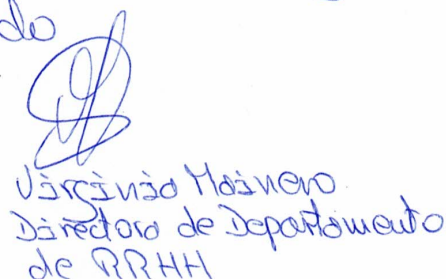 do
Virginia Mainero
Directora de Departamento
de RRHH